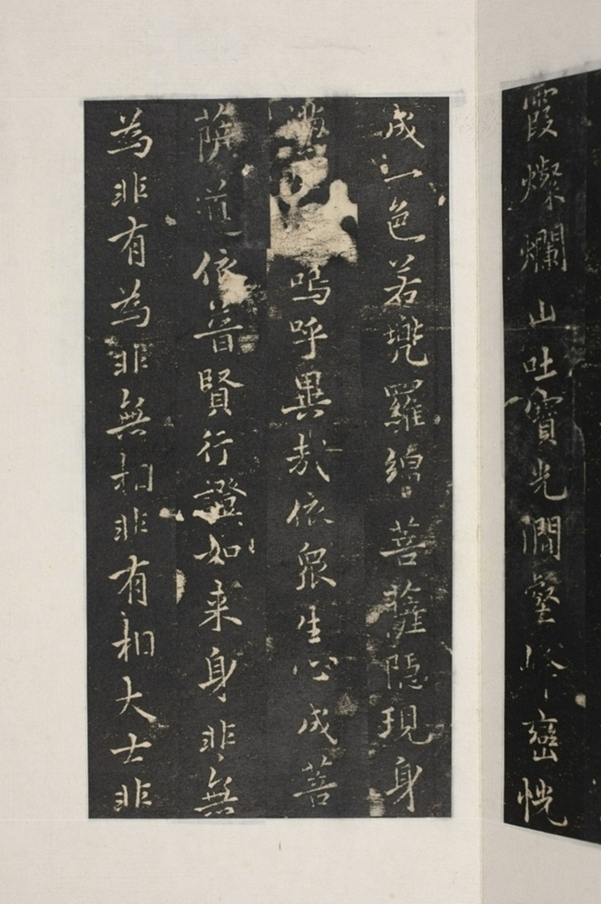 霞燦爛山吐寶光澗壑峰巒恍
成一色若兜羅綿菩薩隱現身
嗚呼異哉依眾生心成菩
薩道依普賢行證如来身非無
為非有為非無相非有相大士非